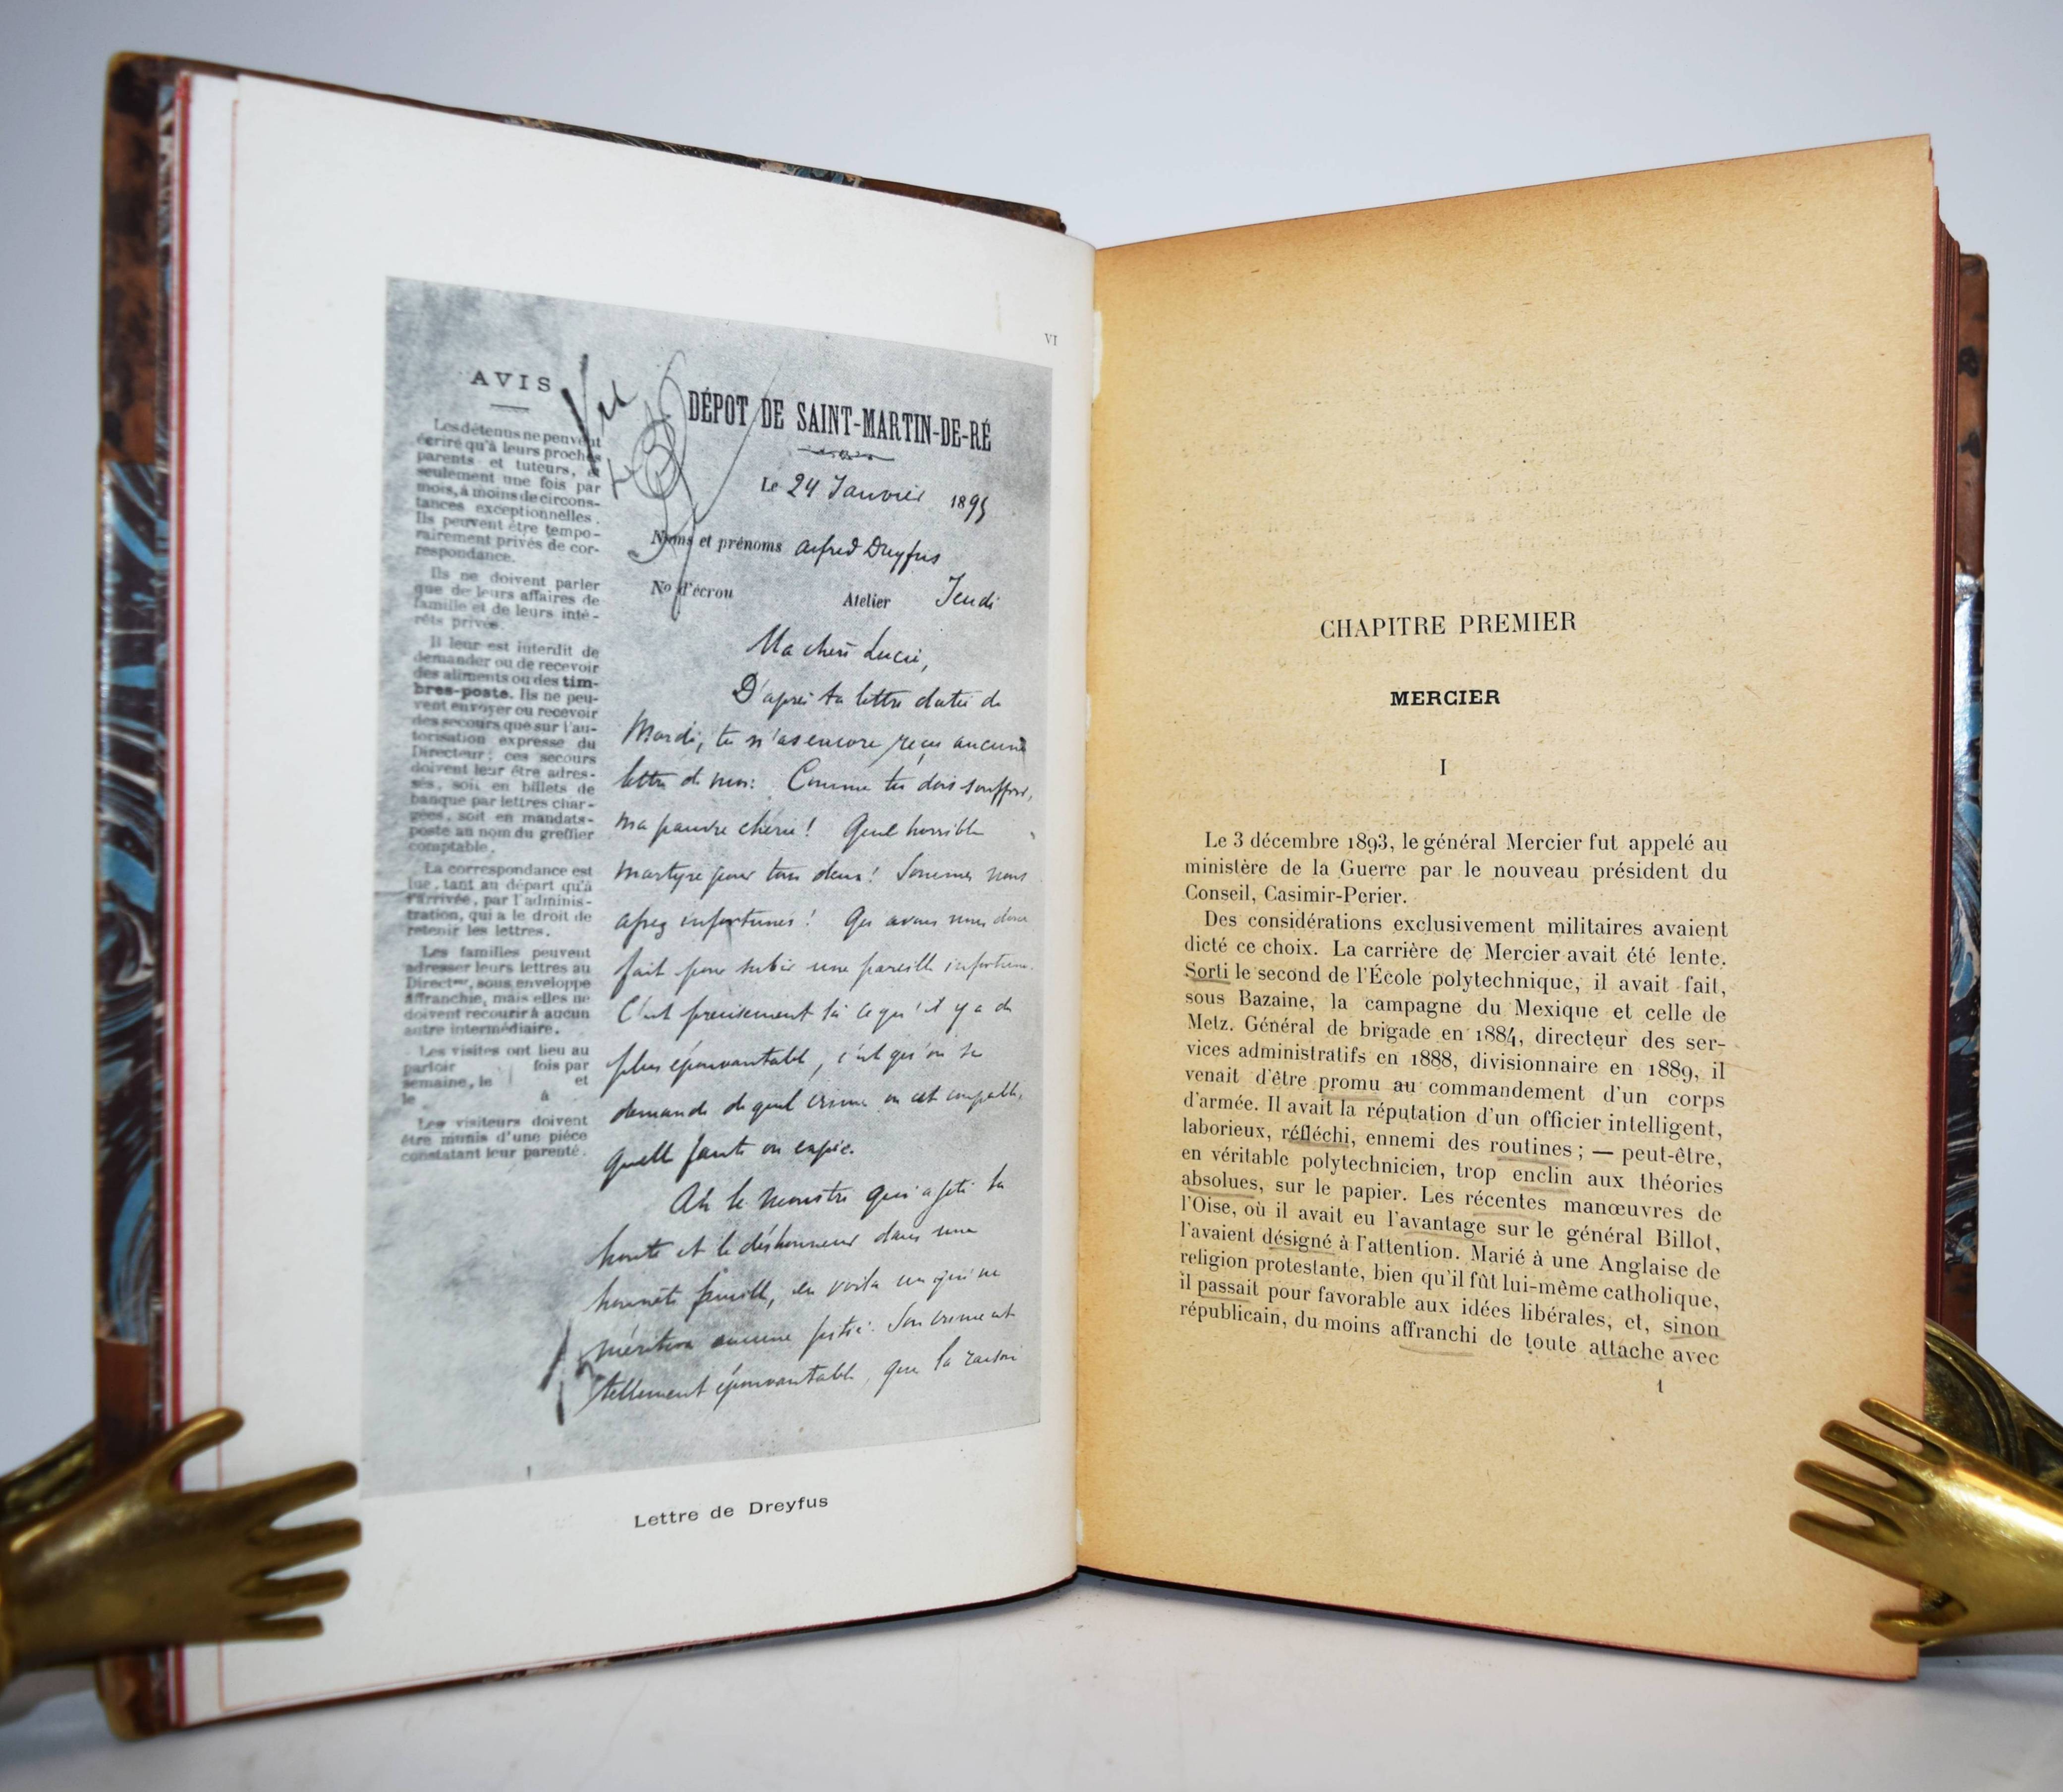 VI
AVIS
Les détenus ne peuvent
écrire qu'à leurs proches
parents et tuteurs, et
seulement une fois par
mois, à moins de circons-
tances exceptionnelles.
Ils peuvent être tempo-
rairement privés de cor-
respondance.
Ils ne doivent parler
que de leurs affaires de
famille et de leurs inté-
rêts privés.
Il leur est interdit de
demander ou de recevoir
des aliments ou des tim-
bres-poste. Ils ne peu-
vent envoyer ou recevoir
des secours que sur l'au-
torisation expresse du
Directeur; ces secours
doivent leur être adres-
sés, soit en billets de
banque par lettres char-
gées, soit en mandats-
poste au nom du greffier
comptable.
La correspondance est
lue, tant au départ qu'à
l'arrivée, par l'adminis-
tration, qui a le droit de
retenir les lettres.
Les familles peuvent
adresser leurs lettres au
Direct<sup>eur</sup>, sous enveloppe
affranchie, mais elles ne
doivent recourir à aucun
autre intermédiaire.
Les visites ont lieu au
parloir fois par
semaine, le et
le à
Les visiteurs doivent
être munis d'une pièce
constatant leur parenté.
Vu
DÉPOT DE SAINT-MARTIN-DE-RÉ
Le 24 Janvier 1895
Noms et prénoms Alfred Dreyfus
No d'écrou Atelier Jeudi
Ma chère Lucie,
D'après ta lettre datée de
Mardi, tu n'as encore reçu aucune
lettre de moi. Comme tu dois souffrir,
ma pauvre chérie! Quel horrible
martyre pour tous deux! Sommes nous
assez infortunés! Qu'avons nous donc
fait pour subir une pareille infortune.
C'est précisément là ce qu'il y a de
plus épouvantable, c'est qu'on se
demande de quel crime on est coupable,
quelle faute on expie.
Ah le monstre qui a jeté la
honte et le déshonneur dans une
honnête famille, en voilà un qui ne
méritera aucune pitié. Son crime est
tellement épouvantable, que la raison
Lettre de Dreyfus
CHAPITRE PREMIER
MERCIER
I
Le 3 décembre 1893, le général Mercier fut appelé au
ministère de la Guerre par le nouveau président du
Conseil, Casimir-Perier.
Des considérations exclusivement militaires avaient
dicté ce choix. La carrière de Mercier avait été lente.
Sorti le second de l'École polytechnique, il avait fait,
sous Bazaine, la campagne du Mexique et celle de
Metz. Général de brigade en 1884, directeur des ser-
vices administratifs en 1888, divisionnaire en 1889, il
venait d'être promu au commandement d'un corps
d'armée. Il avait la réputation d'un officier intelligent,
laborieux, réfléchi, ennemi des routines; — peut-être,
en véritable polytechnicien, trop enclin aux théories
absolues, sur le papier. Les récentes manœuvres de
l'Oise, où il avait eu l'avantage sur le général Billot,
l'avaient désigné à l'attention. Marié à une Anglaise de
religion protestante, bien qu'il fût lui-même catholique,
il passait pour favorable aux idées libérales, et, sinon
républicain, du moins affranchi de toute attache avec
1